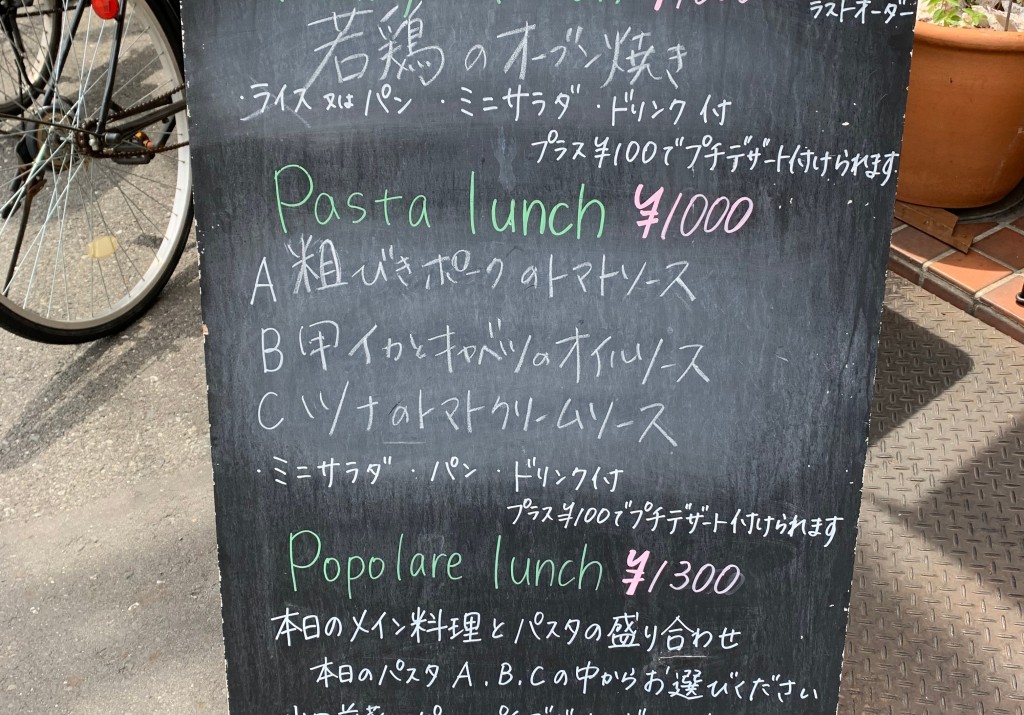 ラストオーダー
若鶏のオーブン焼き
・ライス又はパン ・ミニサラダ ・ドリンク付
プラス¥100でプチデザート付けられます
Pasta lunch ¥1000
A 粗びきポークのトマトソース
B 甲イカとキャベツのオイルソース
C ツナのトマトクリームソース
・ミニサラダ ・パン ・ドリンク付
プラス¥100でプチデザート付けられます
Popolare lunch ¥1300
本日のメイン料理とパスタの盛り合わせ
本日のパスタ A.B.Cの中からお選びください